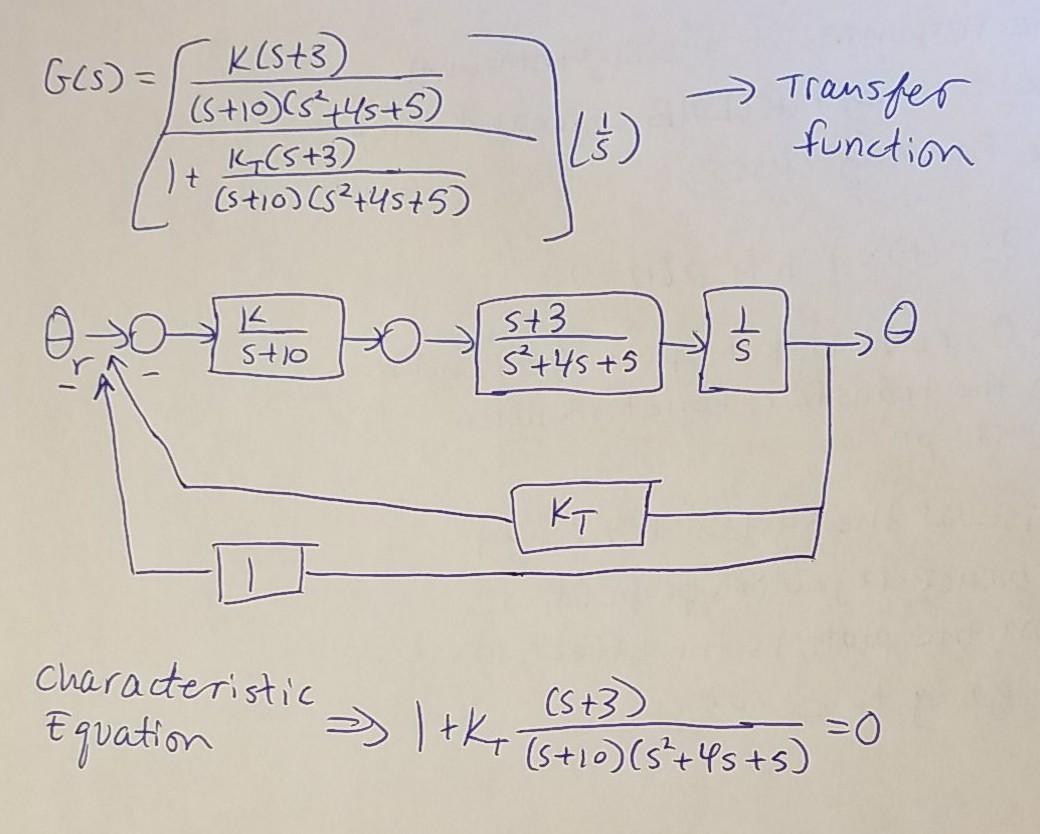 G(s) = [ K(s+3) / (s+10)(s²+4s+5) / 1 + K_T(s+3) / (s+10)(s²+4s+5) ] (1/s) → Transfer function
θr → ○ → K / s+10 → ○ → s+3 / s²+4s+5 → 1/s → θ
- -
K_T
1
Characteristic
Equation ⇒ 1 + K_T (s+3) / (s+10)(s²+4s+5) = 0